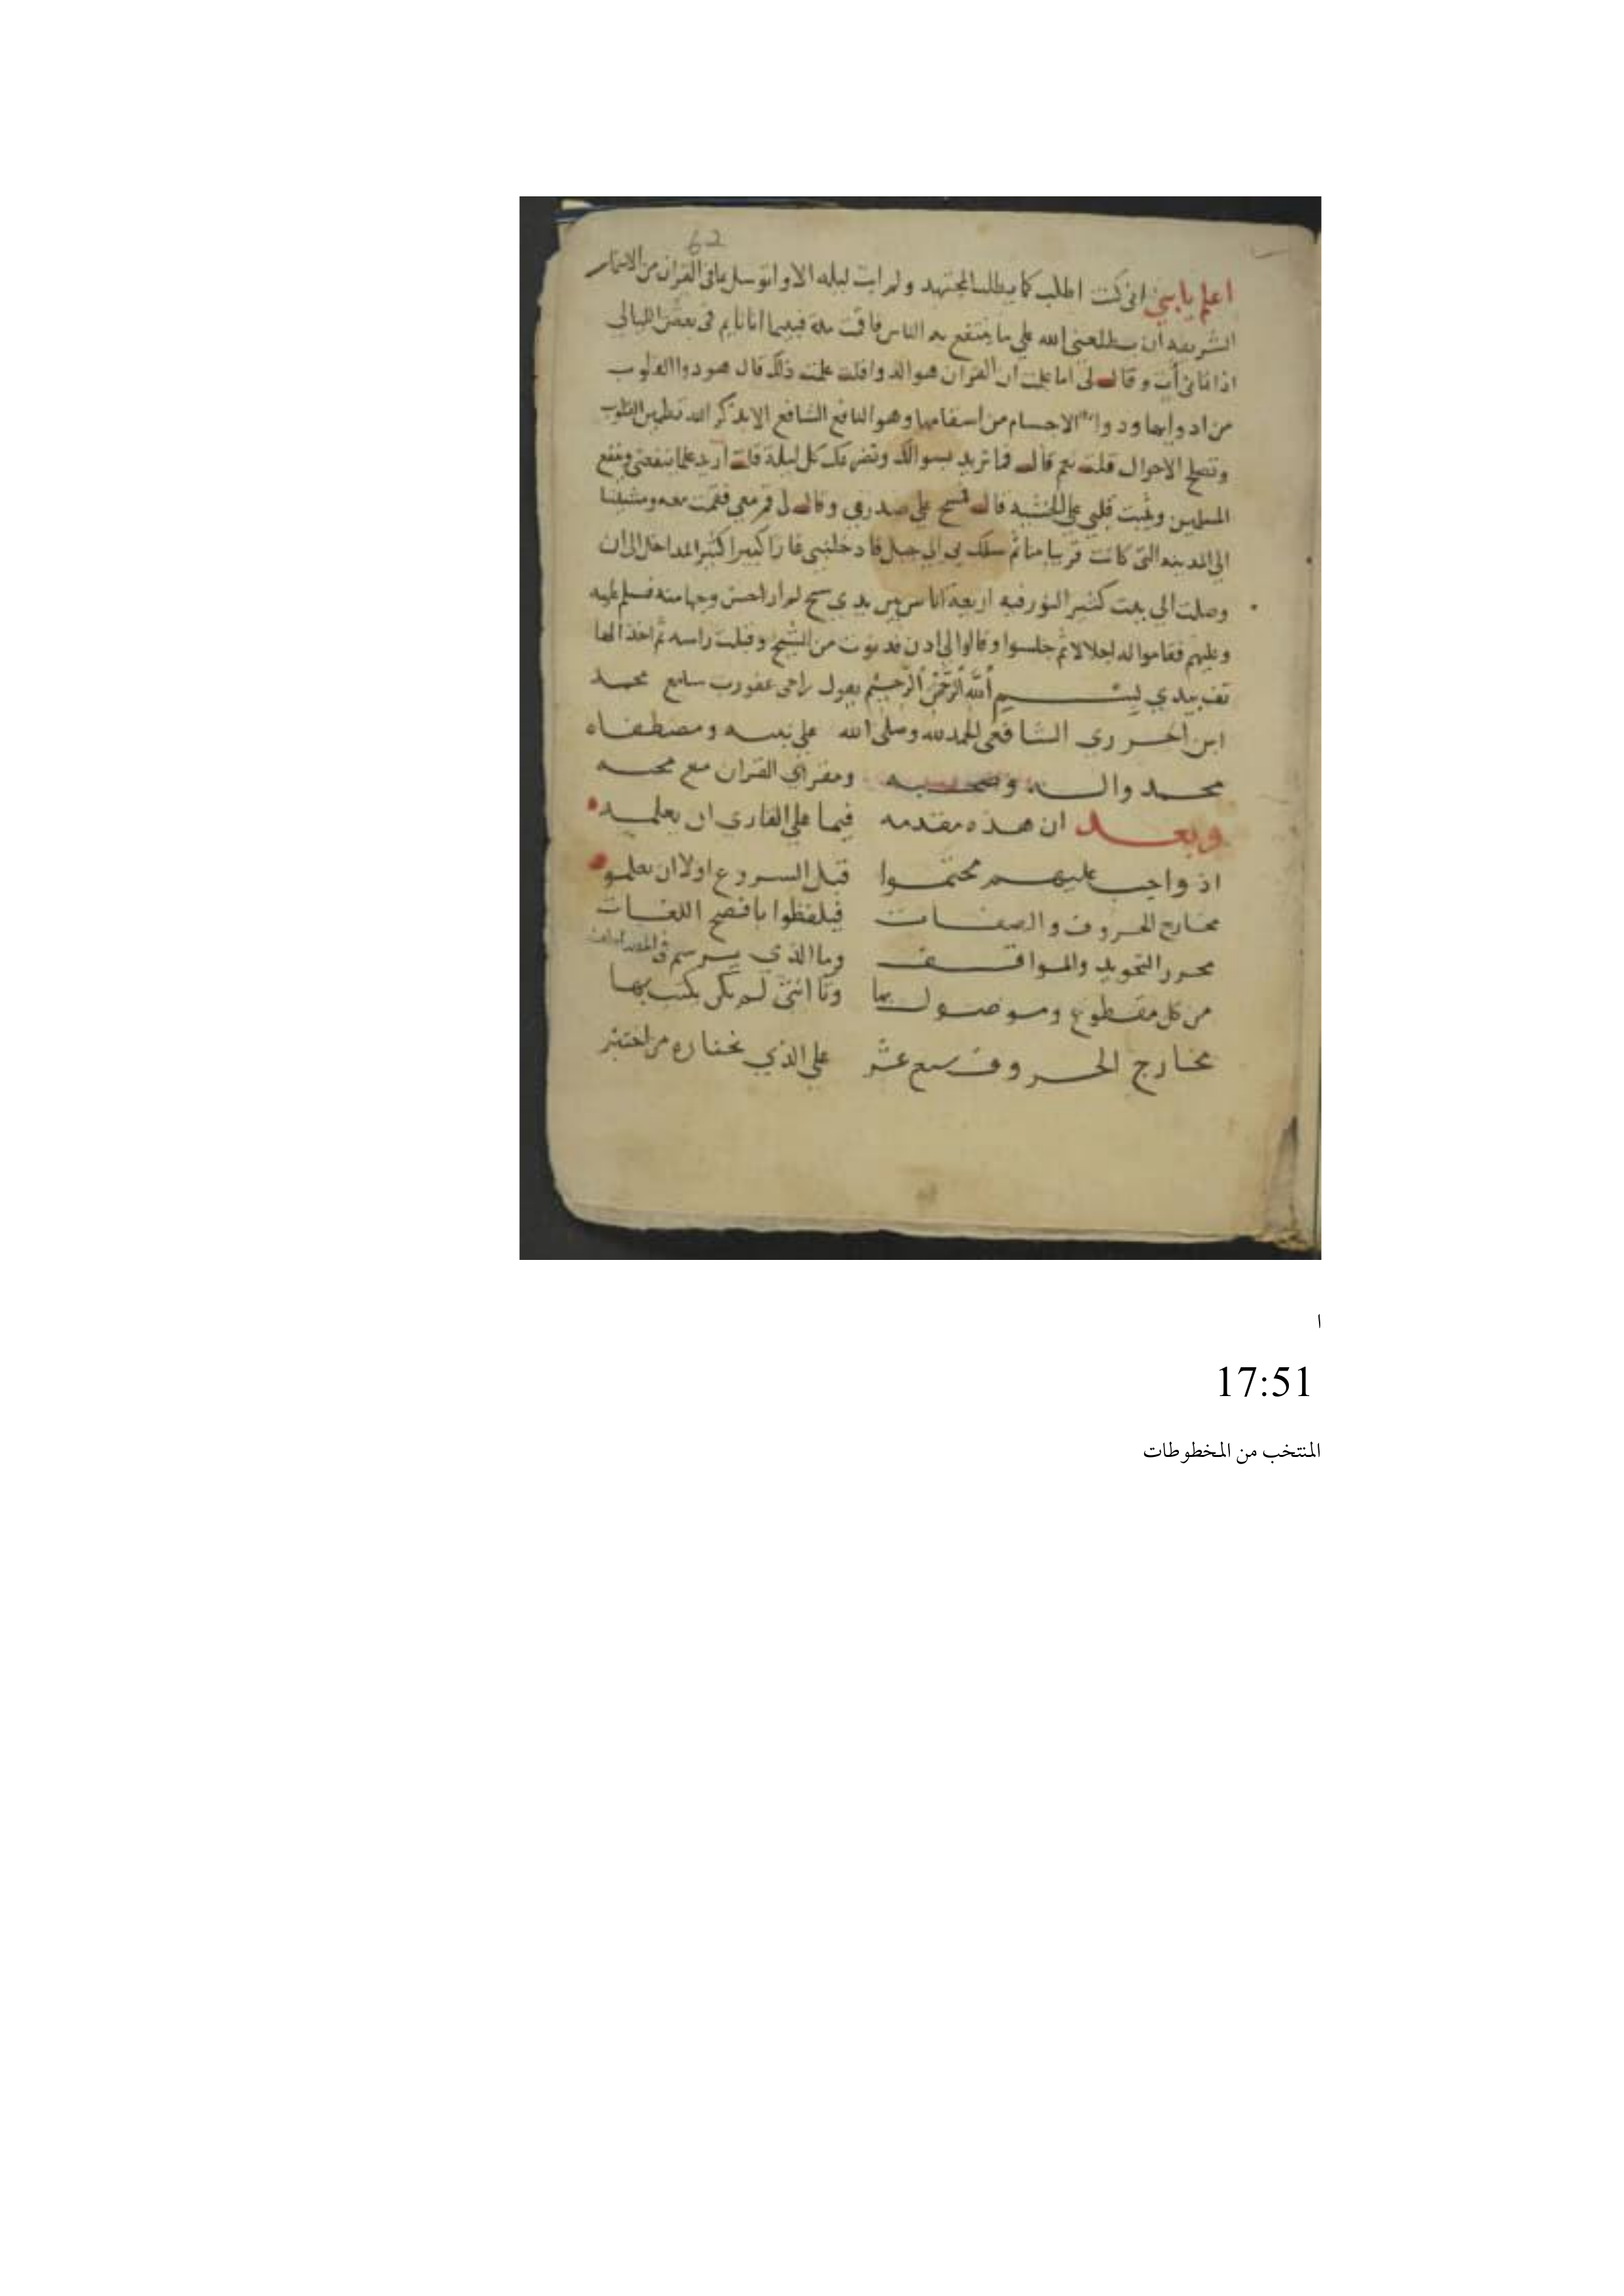 62
اعلم يا بني اني كنت اطلب كما يطلب المجتهد ولم ابت ليله الا واتوسل بما في القران من الاسما
الشريفه ان يطلعني الله علي ما ينتفع به الناس فاقت مدة فبيما انا نايم في بعض الليالي
اذ اتاني آت وقال لي اما علمت ان القران هو الدوا قلت علمت ذلك قال هو دوا القلوب
من ادوايها ودوا الاجسام من اسقامها وهو النافع الشافع الا بذكر الله تطمين القلوب
وتصلح الاحوال قلت نعم قال فما تريد بسوالك وتضرعك كل ليلة قلت اريد علما ينفعني وينفع
المسلمين ويثبت قلبي علي الخشيه قال فمسح علي صدري وقال لي قم معي فقمت معه ومشينا
الي المدينه التي كانت قريبا منا ثم سلك بي الي جبل فادخلني غارا كبيرا كثير المداخل الي ان
وصلت الي بيت كثير النور فيه اربعة اناس بين يدي شيخ لم ار احسن وجها منه فسلم عليه
وعليهم فقاموا له اجلالا ثم جلسوا وقالوا لي ادن فدنوت من الشيخ وقبلت راسه ثم اخذ الها
تف بيدي بسم الله الرحمن الرحيم يقول راجي عفو رب سامع محمد
ابن الجزري الشافعي الحمد لله وصلى الله علي نبيه ومصطفاه
محمد واله وصحبه ومقري القران مع محبه
وبعد ان هذه مقدمه فيما علي القاري ان يعلمه
اذ واجب عليهم محتموا قبل الشروع اولا ان يعلموا
مخارج الحروف والصفات فيلفظوا بافصح اللغات
محرر التجويد والمواقف وما الذي يرسم في المصاحف
من كل مقطوع وموصول بها وتا انثى لم تكن تكتب بها
مخارج الحروف سبع عشر علي الذي يختاره من اختبر
ا
17:51
المنتخب من المخطوطات